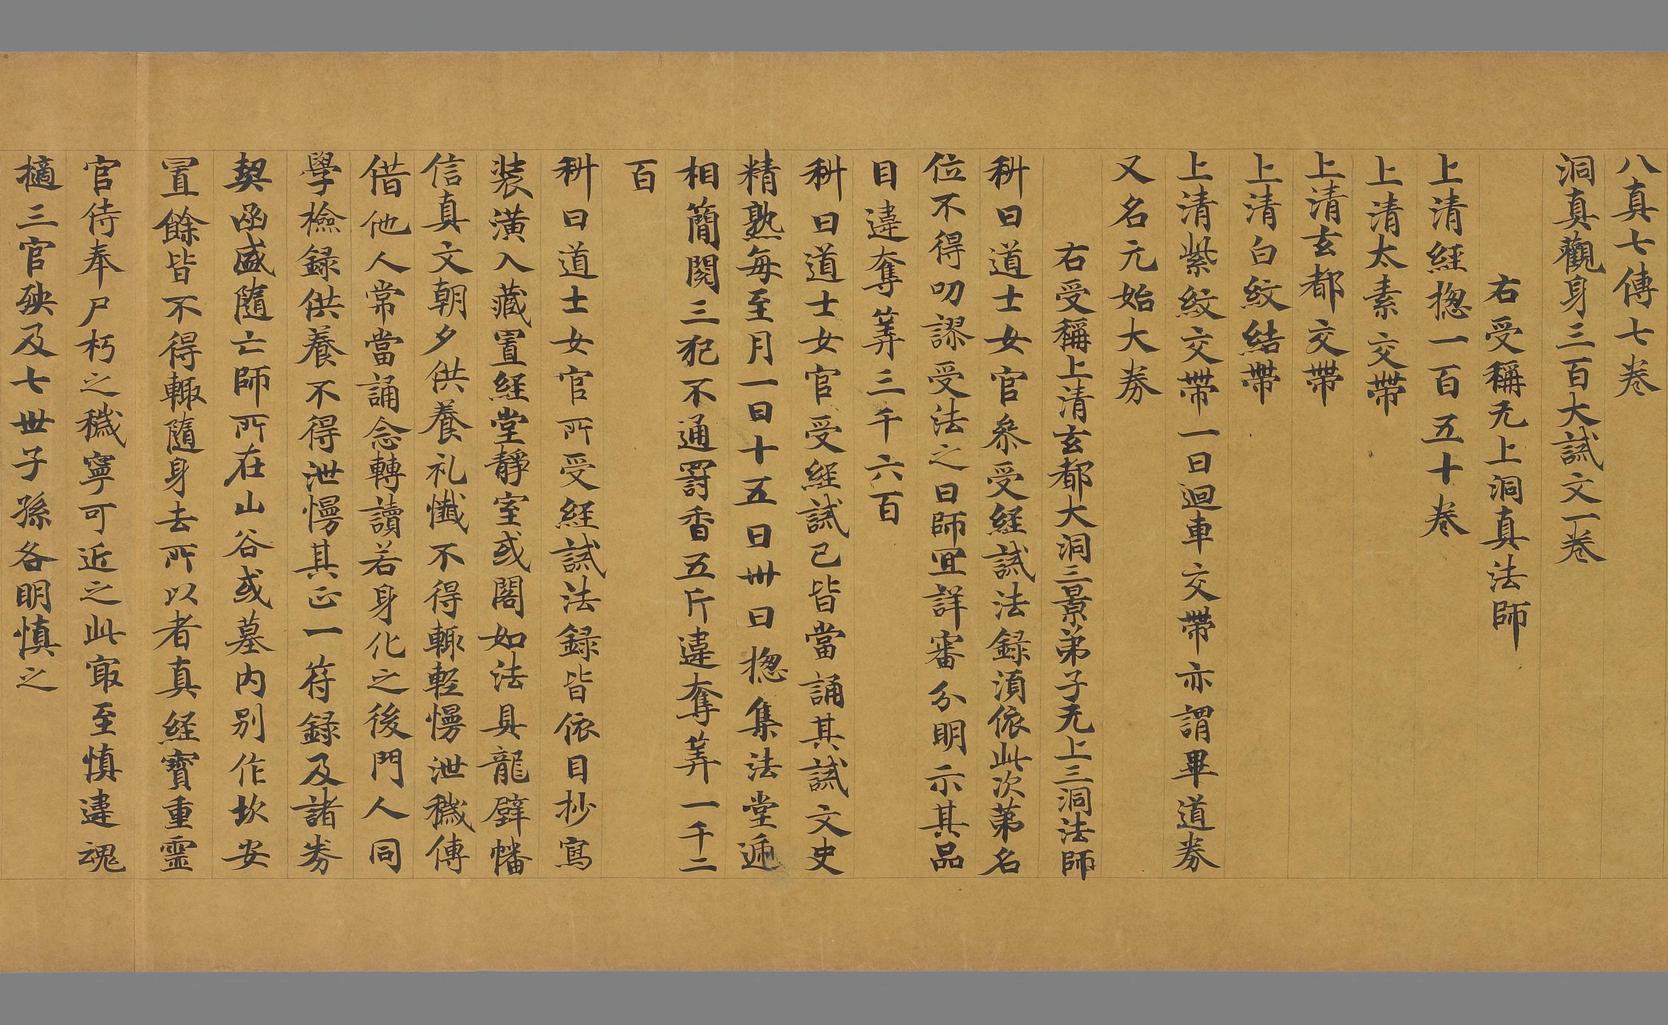 八真七傳七卷
洞真觀身三百大誡文一卷
右受稱无上洞真法師
上清經惣一百五十卷
上清太素交帶
上清玄都交帶
上清白紋結帶
上清紫紋交帶一曰迴車交帶亦謂畢道券
又名元始大券
右受稱上清玄都大洞三景弟子无上三洞法師
科曰道士女官叅受經誡法錄湏依此次苐名
位不得叨謬受法之日師宜詳審分明示其品
目違奪筭三千六百
科曰道士女官受經誡已皆當誦其誡文史
精熟每至月一日十五日卅日惣集法堂遞
相簡閱三犯不通罸香五斤違奪筭一千二
百
科曰道士女官所受經誡法錄皆依目抄寫
裝潢入藏置經堂靜室或閣如法具龍璧幡
信真文朝夕供養礼懺不得輙輕慢泄穢傳
借他人常當誦念轉讀若身化之後門人同
學檢錄供養不得泄慢其正一符錄及諸券
契函盛隨亡師所在山谷或墓內別作坎安
置餘皆不得輙隨身去所以者真經寶重靈
官侍奉尸朽之穢寧可近之此㝡至慎違魂
擿三官殃及七世子孫各明慎之